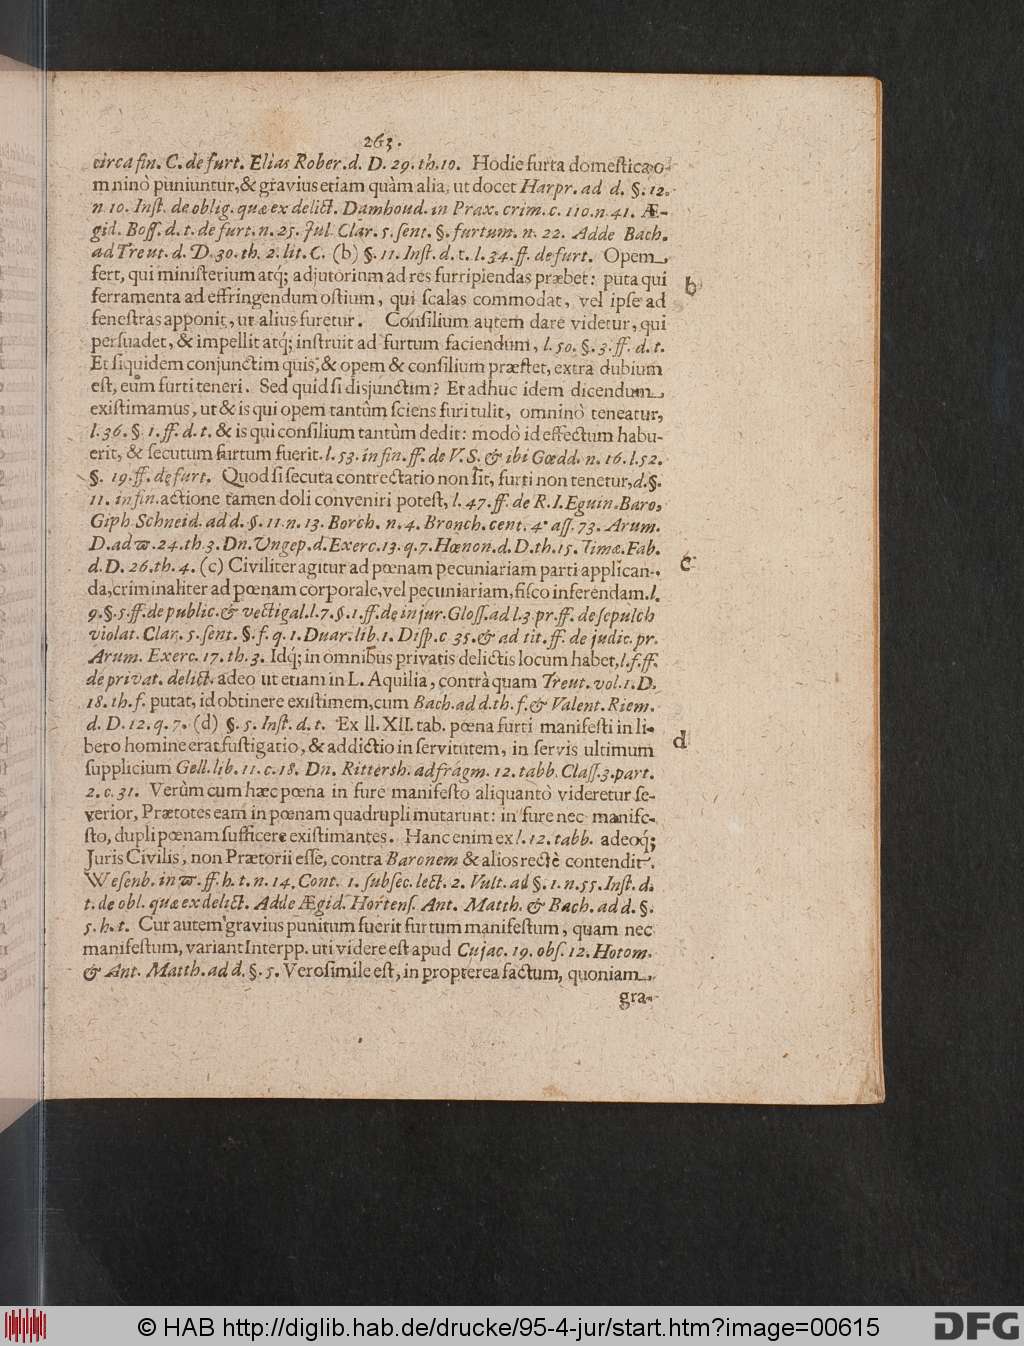 263.
circa fin. C. de furt. Elias Rober. d. D. 29. th. 10. Hodie furta domestica o-
mninò puniuntur, & gravius etiam quàm alia, ut docet Harpr. ad d. §. 12.
n 10. Inst. de oblig. quæ ex delict. Damhoud. in Prax. crim. c. 110. n 41. Æ-
gid. Boss. d. t. de furt. n. 25. Jul Clar. 5. sent. §. furtum. n. 22. Adde Bach.
ad Treut. d. D. 30. th. 2. lit. C. (b) §. 11. Inst. d. t. l. 34. ff. de furt. Opem
fert, qui ministerium atq; adjutorium ad res surripiendas præbet: puta qui
b
ferramenta ad effringendum ostium, qui scalas commodat, vel ipse ad
fenestras apponit, ut alius furetur. Consilium autem dare videtur, qui
persuadet, & impellit atq; instruit ad furtum faciendum, l. 50. §. 3. ff. d. t.
Et siquidem conjunctim quis, & opem & consilium præstet, extra dubium
est, eum furti teneri. Sed quid si disjunctim? Et adhuc idem dicendum
existimamus, ut & is qui opem tantùm sciens furi tulit, omninò teneatur,
l. 36. §. 1. ff. d. t. & is qui consilium tantùm dedit: modò id effectum habu-
erit, & secutum furtum fuerit. l. 53. in fin. ff. de V. S. & ibi Gœdd. n. 16. l. 52.
§. 19. ff. de furt. Quod si secuta contrectatio non sit, furti non tenetur, d. §.
11. in fin. actione tamen doli conveniri potest, l. 47. ff. de R. I. Eguin. Baro,
Giph Schneid. ad d. §. 11. n. 13. Borch. n. 4. Bronch. cent. 4. ass. 73. Arum.
D. ad ϖ. 24. th. 3. Dn. Ungep. d. Exerc. 13. q. 7. Hœnon. d. D. th. 15. Timæ. Fab.
d. D. 26. th. 4. (c) Civiliter agitur ad pœnam pecuniariam parti applican-
c
da, criminaliter ad pœnam corporale, vel pecuniariam, fisco inferendam. l.
9. §. 5. ff. de public. & vectigal. l. 7. §. 1. ff. de injur. Gloss. ad l. 3. pr. ff. de sepulch
violat. Clar. 5. sent. §. f. q. 1. Duar. lib. 1. Disp. c 35. & ad tit. ff. de judic. pr.
Arum. Exerc. 17. th. 3. Idq; in omnibus privatis delictis locum habet, l. f. ff.
de privat. delict. adeo ut etiam in L. Aquilia, contrà quam Treut. vol. 1. D.
18. th. f. putat, id obtinere existimem, cum Bach. ad d. th. f. & Valent. Riem.
d. D. 12. q. 7. (d) §. 5. Inst. d. t. Ex ll. XII. tab. pœna furti manifesti in li-
d
bero homine erat fustigatio, & addictio in servitutem, in servis ultimum
supplicium Gell. lib. 11. c. 18. Dn. Rittersh. ad fragm. 12. tabb. Class. 3. part.
2. c. 31. Verùm cum hæc pœna in fure manifesto aliquantò videretur se-
verior, Prætores eam in pœnam quadrupli mutarunt: in fure nec manife-
sto, dupli pœnam sufficere existimantes. Hanc enim ex l. 12. tabb. adeoq;
Juris Civilis, non Prætorii esse, contra Baronem & alios rectè contendit
Wesenb. in ϖ. ff. h. t. n. 14. Cont. 1. subsec. lect. 2. Vult. ad §. 1. n. 55. Inst. d.
t. de obl. quæ ex delict. Adde Ægid. Hortens. Ant. Matth. & Bach. ad d. §.
5. h. t. Cur autem gravius punitum fuerit furtum manifestum, quam nec
manifestum, variant Interpp. uti videre est apud Cujac. 19. obs. 12. Hotom.
& Ant. Matth. ad d. §. 5. Verosimile est, in propterea factum, quoniam
gra-
© HAB http://diglib.hab.de/drucke/95-4-jur/start.htm?image=00615
DFG